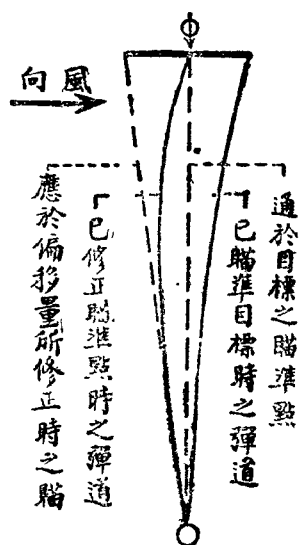 風向
通於目標之瞄準點
已瞄準目標時之彈道
已修正瞄準點時之彈道
應於偏移量所修正時之瞄